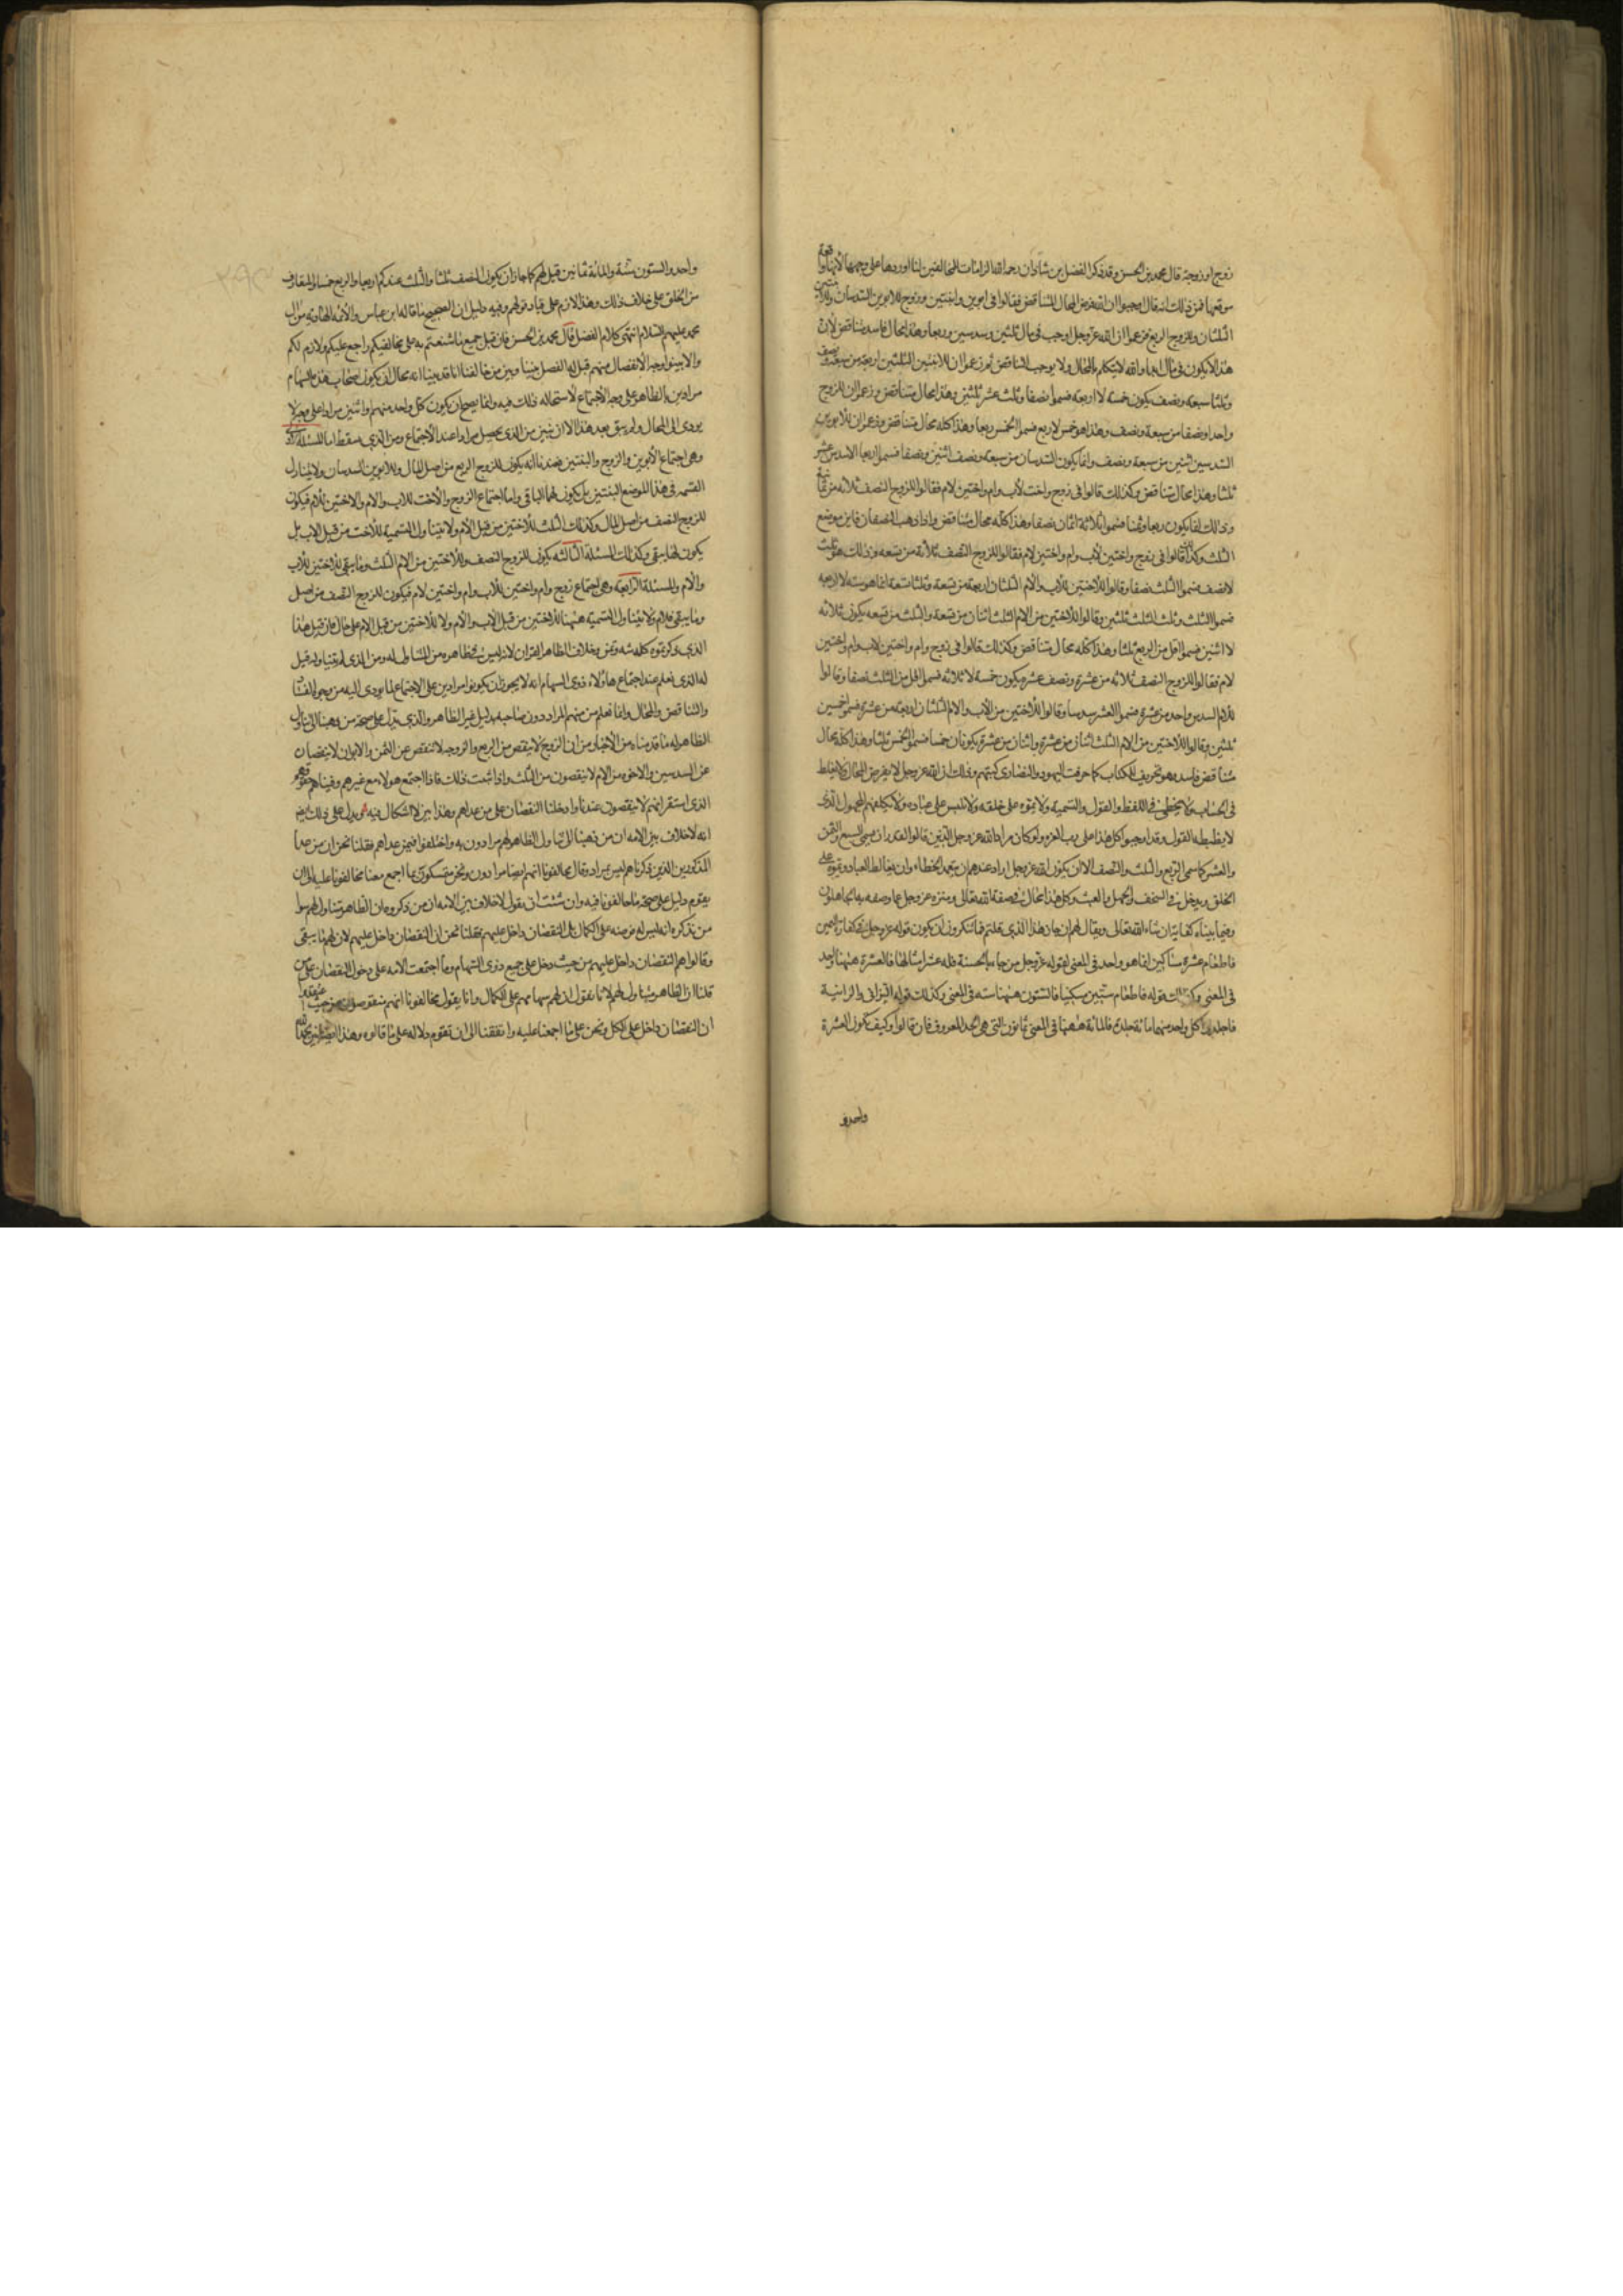 زوج او زوجة قال محمد بن الحسن وقد ذكر الفضل بن شاذان رحمه الله الزامات للمخالفين لنا اوردها على وجهها لانها واقعة
موقعها فمن ذلك انه قال اوجبوا ان الله فرض المحال المتناقض فقالوا في ابوين وابنتين وزوج للابوين السدسان وللابنتين
الثلثان وللزوج الربع فزعموا ان الله عز وجل اوجب في مال ثلثين وسدسين وربعا وهذا محال فاسد متناقض لان
هذا لا يكون في مال ابدا والله لا يتكلم بالمحال ولا يوجب المتناقض ثم زعموا ان للابنتين الثلثين اربعة من سبعة ونصف
وثلثا سبعة ونصف يكون خمسة لا اربعة فسموا نصفا وثلث عشر ثلثين وهذا محال متناقض وزعموا ان للزوج
واحدا ونصفا من سبعة ونصف وهذا هو خمس لا ربع فسموا الخمس ربعا وهذا كله محال متناقض وزعموا ان للابوين
السدسين اثنين من سبعة ونصف وانما يكون السدسان من سبعة ونصف اثنين ونصفا فسموا ربعا الا سدس عشر
ثلثا وهذا محال متناقض وكذلك قالوا في زوج واخت لاب وام واختين لام فقالوا للزوج النصف ثلاثة من ثمانية
وذلك انما يكون ربعا وثمنا فسموا ثلاثة اثمان نصفا وهذا كله محال متناقض واذا ذهب النصفان فاين موضع
الثلث وكذلك قالوا في زوج واختين لاب وام واختين لام فقالوا للزوج النصف ثلاثة من تسعة وذلك هو ثلث
لا نصف فسموا الثلث نصفا وقالوا للاختين للاب والام الثلثان اربعة من تسعة وثلثا تسعة انما هو ستة لا اربعة
فسموا الثلث وثلث الثلث ثلثين وقالوا للاختين من الام الثلث اثنان من تسعة والثلث من تسعة يكون ثلاثة
لا اثنين فسموا اقل من الربع ثلثا وهذا كله محال متناقض وكذلك قالوا في زوج وام واختين لاب وام واختين
لام فقالوا للزوج النصف ثلاثة من عشرة ونصف عشرة يكون خمسة لا ثلاثة فسموا اقل من الثلث نصفا وقالوا
للام السدس واحد من عشرة فسموا العشر سدسا وقالوا للاختين من الاب والام الثلثان اربعة من عشرة فسموا خمسين
ثلثين وقالوا للاختين من الام الثلث اثنان من عشرة واثنان من عشرة يكونان خمسا فسموا الخمس ثلثا وهذا كله محال
متناقض فاسد وهو تحريف للكتاب كما حرفت اليهود والنصارى كتبهم وذلك ان الله عز وجل لا يفرض المحال ولا يغلط
في الحساب ولا يخطئ في اللفظ والقول والتسمية ولا يموه على خلقه ولا يلبس على عباده ولا يكلفهم المجهول الذي
لا يضبطه القول وقد اوجبوا كل هذا على رب العزة ولو كان مراد الله عز وجل الذين قالوا لقدر ان يسمي السبع والثمن
والعشر كما سمى الربع والثلث والنصف الا ان يكون الله عز وجل اراد عندهم ان يتعمد الخطاء وان يغالط العباد ويموه على
الخلق ويدخل في السخف والجهل والعبث وكل هذا محال في صفة الله تعالى ومنزه عز وجل عما وصفه به الجاهلون
وفيما بيناه كفاية ان شاء الله تعالى ويقال لهم ان جاز هذا الذي قلتم فما تنكرون ان يكون قوله عز وجل في كفارة اليمين
فاطعام عشرة مساكين انما هو واحد في المعنى لقوله عز وجل من جاء بالحسنة فله عشر امثالها فالعشرة هيهنا واحد
في المعنى وكذلك قوله فاطعام ستين مسكينا فالستون هيهنا ستة في المعنى وكذلك قوله الزاني والزانية
فاجلدوا كل واحد منهما مائة جلدة فالمائة هيهنا في المعنى ثمانون التي هي الحد المعروف فان قالوا وكيف تكون العشرة
واحدا و
واحد والستون ستة والمائة ثمانين قيل لهم كما جاز ان يكون النصف ثلثا والثلث عندكم ربعا والربع خمسا والمتعارف
من الخلق على خلاف ذلك وهذا لازم على قياد قولهم وفيه دليل ان الصحيح ما قاله ابن عباس والائمة الهادية من ال
محمد عليهم السلام انتهى كلام الفضل قال محمد بن الحسن فان قيل جميع ما شنعتم به على مخالفيكم راجع عليكم ولازم لكم
والا بينوا وجه الانفصال منهم قيل له الفصل بيننا وبين من خالفنا انا قد بينا انه محال ان يكون اصحاب هذه السهام
مرادين بالظاهر على وجه الاجتماع لاستحالة ذلك فيه وانما يصح ان يكون كل واحد منهم او اثنين مرادا على وجه لا
يودي الى المحال ولم يبق بعد هذا الا ان نبين من الذي يحصل مرادا عند الاجتماع ومن الذي يسقط اما المسئلة الاولى
وهي اجتماع الابوين والزوج والبنتين فعندنا انه يكون للزوج الربع من اصل المال وللابوين السدسان ولا يتناول
التسمية في هذا الموضع البنتين بل يكون لهما الباقي واما اجتماع الزوج والاخت للاب والام والاختين للام فيكون
للزوج النصف من اصل المال وكذلك الثلث للاختين من قبل الام ولا يتناول التسمية للاخت من قبل الاب بل
يكون لها ما يبقى وكذلك المسئلة الثالثة يكون للزوج النصف وللاختين من الام الثلث وما يبقى للاختين للاب
والام والمسئلة الرابعة وهي اجتماع زوج وام واختين للاب وام واختين لام فيكون للزوج النصف من اصل
وما يبقى فللام ولا يتناول التسمية هيهنا للاختين من قبل الاب والام ولا للاختين من قبل الام على حال فان قيل هذا
الذي ذكرتموه كله شهوة وتمن وخلاف لظاهر القران لانه ليس في ظاهره من المتناول له ومن الذي لم يتناوله قيل
له الذي نعلم عند اجتماع هاولاء ذوي السهام انه لا يجوز ان يكونوا مرادين على الاجتماع لما يودي اليه من وجوه الفساد
والتناقض والمحال وانما نعلم من منهم المراد دون صاحبه بدليل غير الظاهر والذي يدل على صحة من ذهبنا الى تناول
الظاهر له ما قدمناه من الاخبار من ان الزوج لا ينقص من الربع والزوجة لا تنقص عن الثمن والابوان لا ينقصان
عن السدسين والاخوة من الام لا ينقصون من الثلث واذا ثبت ذلك فاذا اجتمع هولاء مع غيرهم وفيناهم حقوقهم
الذي استقر انهم لا ينقصون عندنا وادخلنا النقصان على من عداهم وهذا بين لا اشكال فيه ويدل على ذلك ايضا
انه لا خلاف بين الامة ان من ذهبنا الى تناول الظاهر لهم مرادون به واختلفوا فيمن عداهم فقلنا نحن ان من عدا
المذكورين الذين ذكرناهم ليس بمراد وقال مخالفونا انهم ايضا مرادون ونحن متمسكون بما اجمع معنا مخالفونا عليه الى ان
يقوم دليل على صحة ما خالفونا فيه وان شئت ان تقول لا خلاف بين الامة ان من ذكروه ان الظاهر تناولهم سوا
من نذكره انه ليس له فرضه على الكمال بل النقصان داخل عليهم فقلنا نحن ان النقصان داخل عليهم لان لهم ما يبقى
وقالوا هم النقصان داخل عليهم من حيث دخل على جميع ذوي السهام وما اجتمعت الامة على دخول النقصان على من
قلنا ان الظاهر متناول لهم لانا نقول ان لهم سهامهم على الكمال وانما يقول مخالفونا انهم منقوصون من حيث اعتقدوا
ان النقصان داخل على الكل ونحن على ما اجمعنا عليه واتفقنا الى ان تقوم دلالة على ما قالوه وهذا ايضا بين بحمد الله